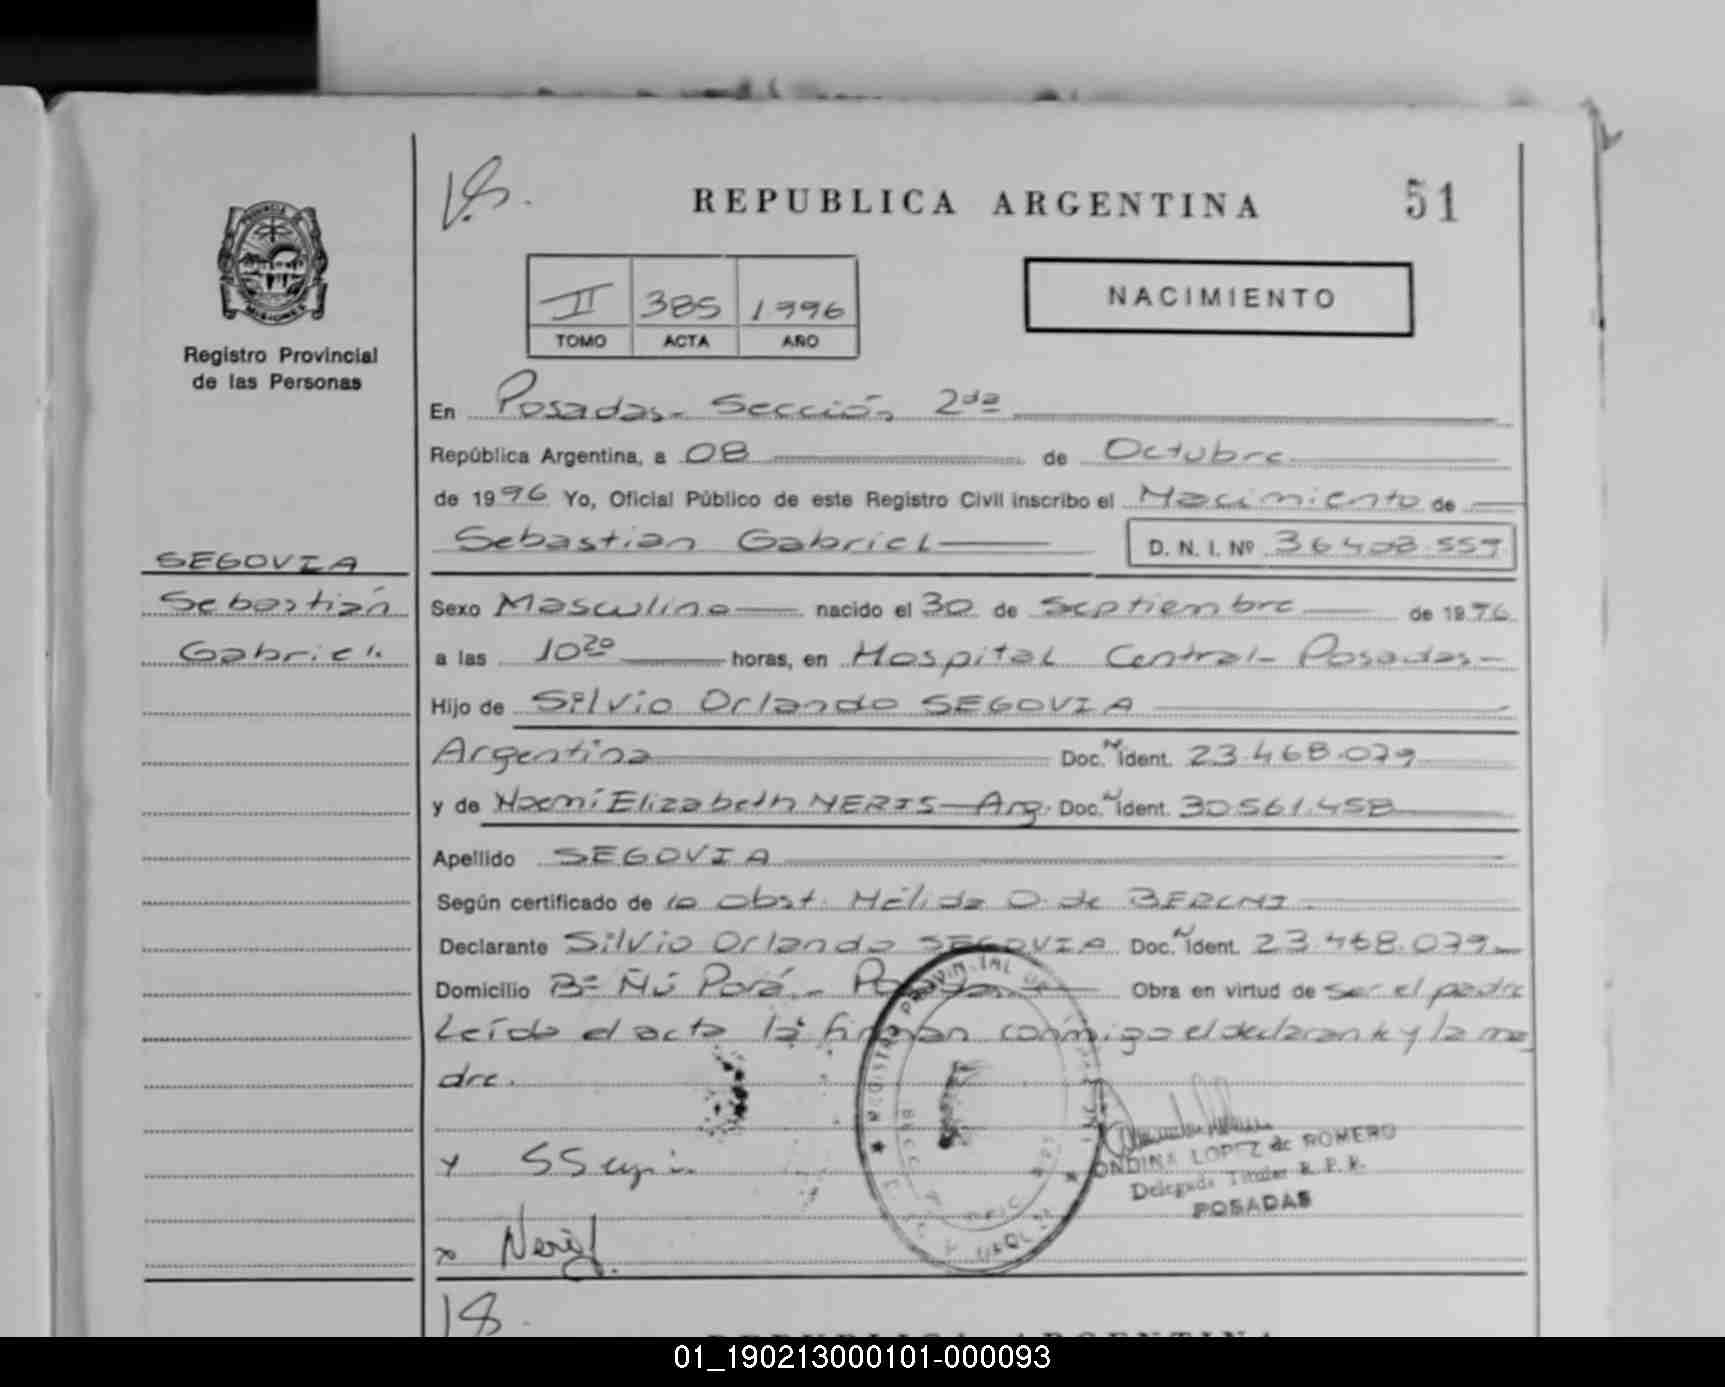 V.S.
REPUBLICA ARGENTINA
51
PROVINCIA DE MISIONES
Registro Provincial
de las Personas
II 385 1996
TOMO ACTA AÑO
NACIMIENTO
En Posadas - Sección 2da
República Argentina, a 08 de Octubre
de 1996 Yo, Oficial Público de este Registro Civil inscribo el Nacimiento de
Sebastian Gabriel D. N. I. Nº 36.408.559
SEGOVIA
Sebastián
Gabriel.
Sexo Masculino nacido el 30 de Septiembre de 1996
a las 10 20 horas, en Hospital Central - Posadas -
Hijo de Silvio Orlando SEGOVIA
Argentina Doc. N ident. 23.468.079
y de Noemí Elizabeth NERIS - Arg. Doc. N ident. 30.561.458
Apellido SEGOVIA
Según certificado de la Obst. Nélida O. de
Declarante Silvio Orlando SEGOVIA Doc. N ident. 23.468.079
Domicilio Bº Ñú Porá - Posadas Obra en virtud de ser el padre
Leída el acta la firman conmigo el declarante y la ma
dre.
ONDINA LOPEZ de ROMERO
Delegada Titular R. P. P.
POSADAS
x Neris
REPUBLICA ARGENTINA
01_190213000101-000093